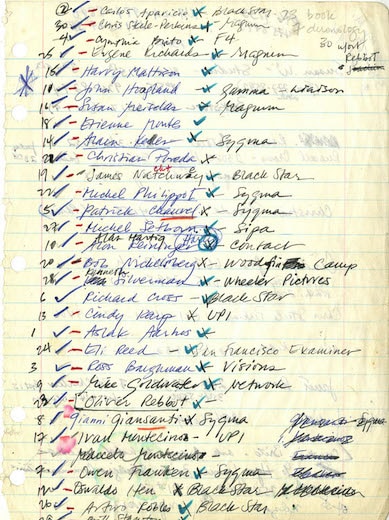 2 - Carlos Aparicio x Black Star 23 book
30 - Chris Steele-Perkins - Magnum chronology
4 - Cynthia Brito - F4 30 w/out Rebbot
25 - Eugene Richards - Magnum
16 - Harry Mattison
10 - John Hoagland - Gamma + Liaison
- Susan Meiselas - Magnum
18 - Etienne Montes
14 - Alain Keler x Sygma
21 - Christian Poveda x
19 - James Nachtwey x Black Star
22 - Michel Philippot - Sygma
5 - Patrick Chauvel x - Sygma
27 - Michel Setboun x - Sipa
x Contact
20 - Bob Nickelsberg x - Woodfin Camp
28 - Kenneth Silverman - Wheeler Pictures
6 - Richard Cross - Black Star
13 - Cindy Karp x UPI
1 - Aslak Aarhus
24 - Eli Reed - San Francisco Examiner
3 - Ross Baughman x Visions
9 - Goldwater - Network
23 Olivier Rebbot
8 - Gianni Giansanti x Sygma
17 - Ivan Montecinos - UPI
Marcelo Montecinos
7 - Owen Franken x Sygma
12 - Oswaldo Hen x Black Star
26 - Arturo Robles Black Star